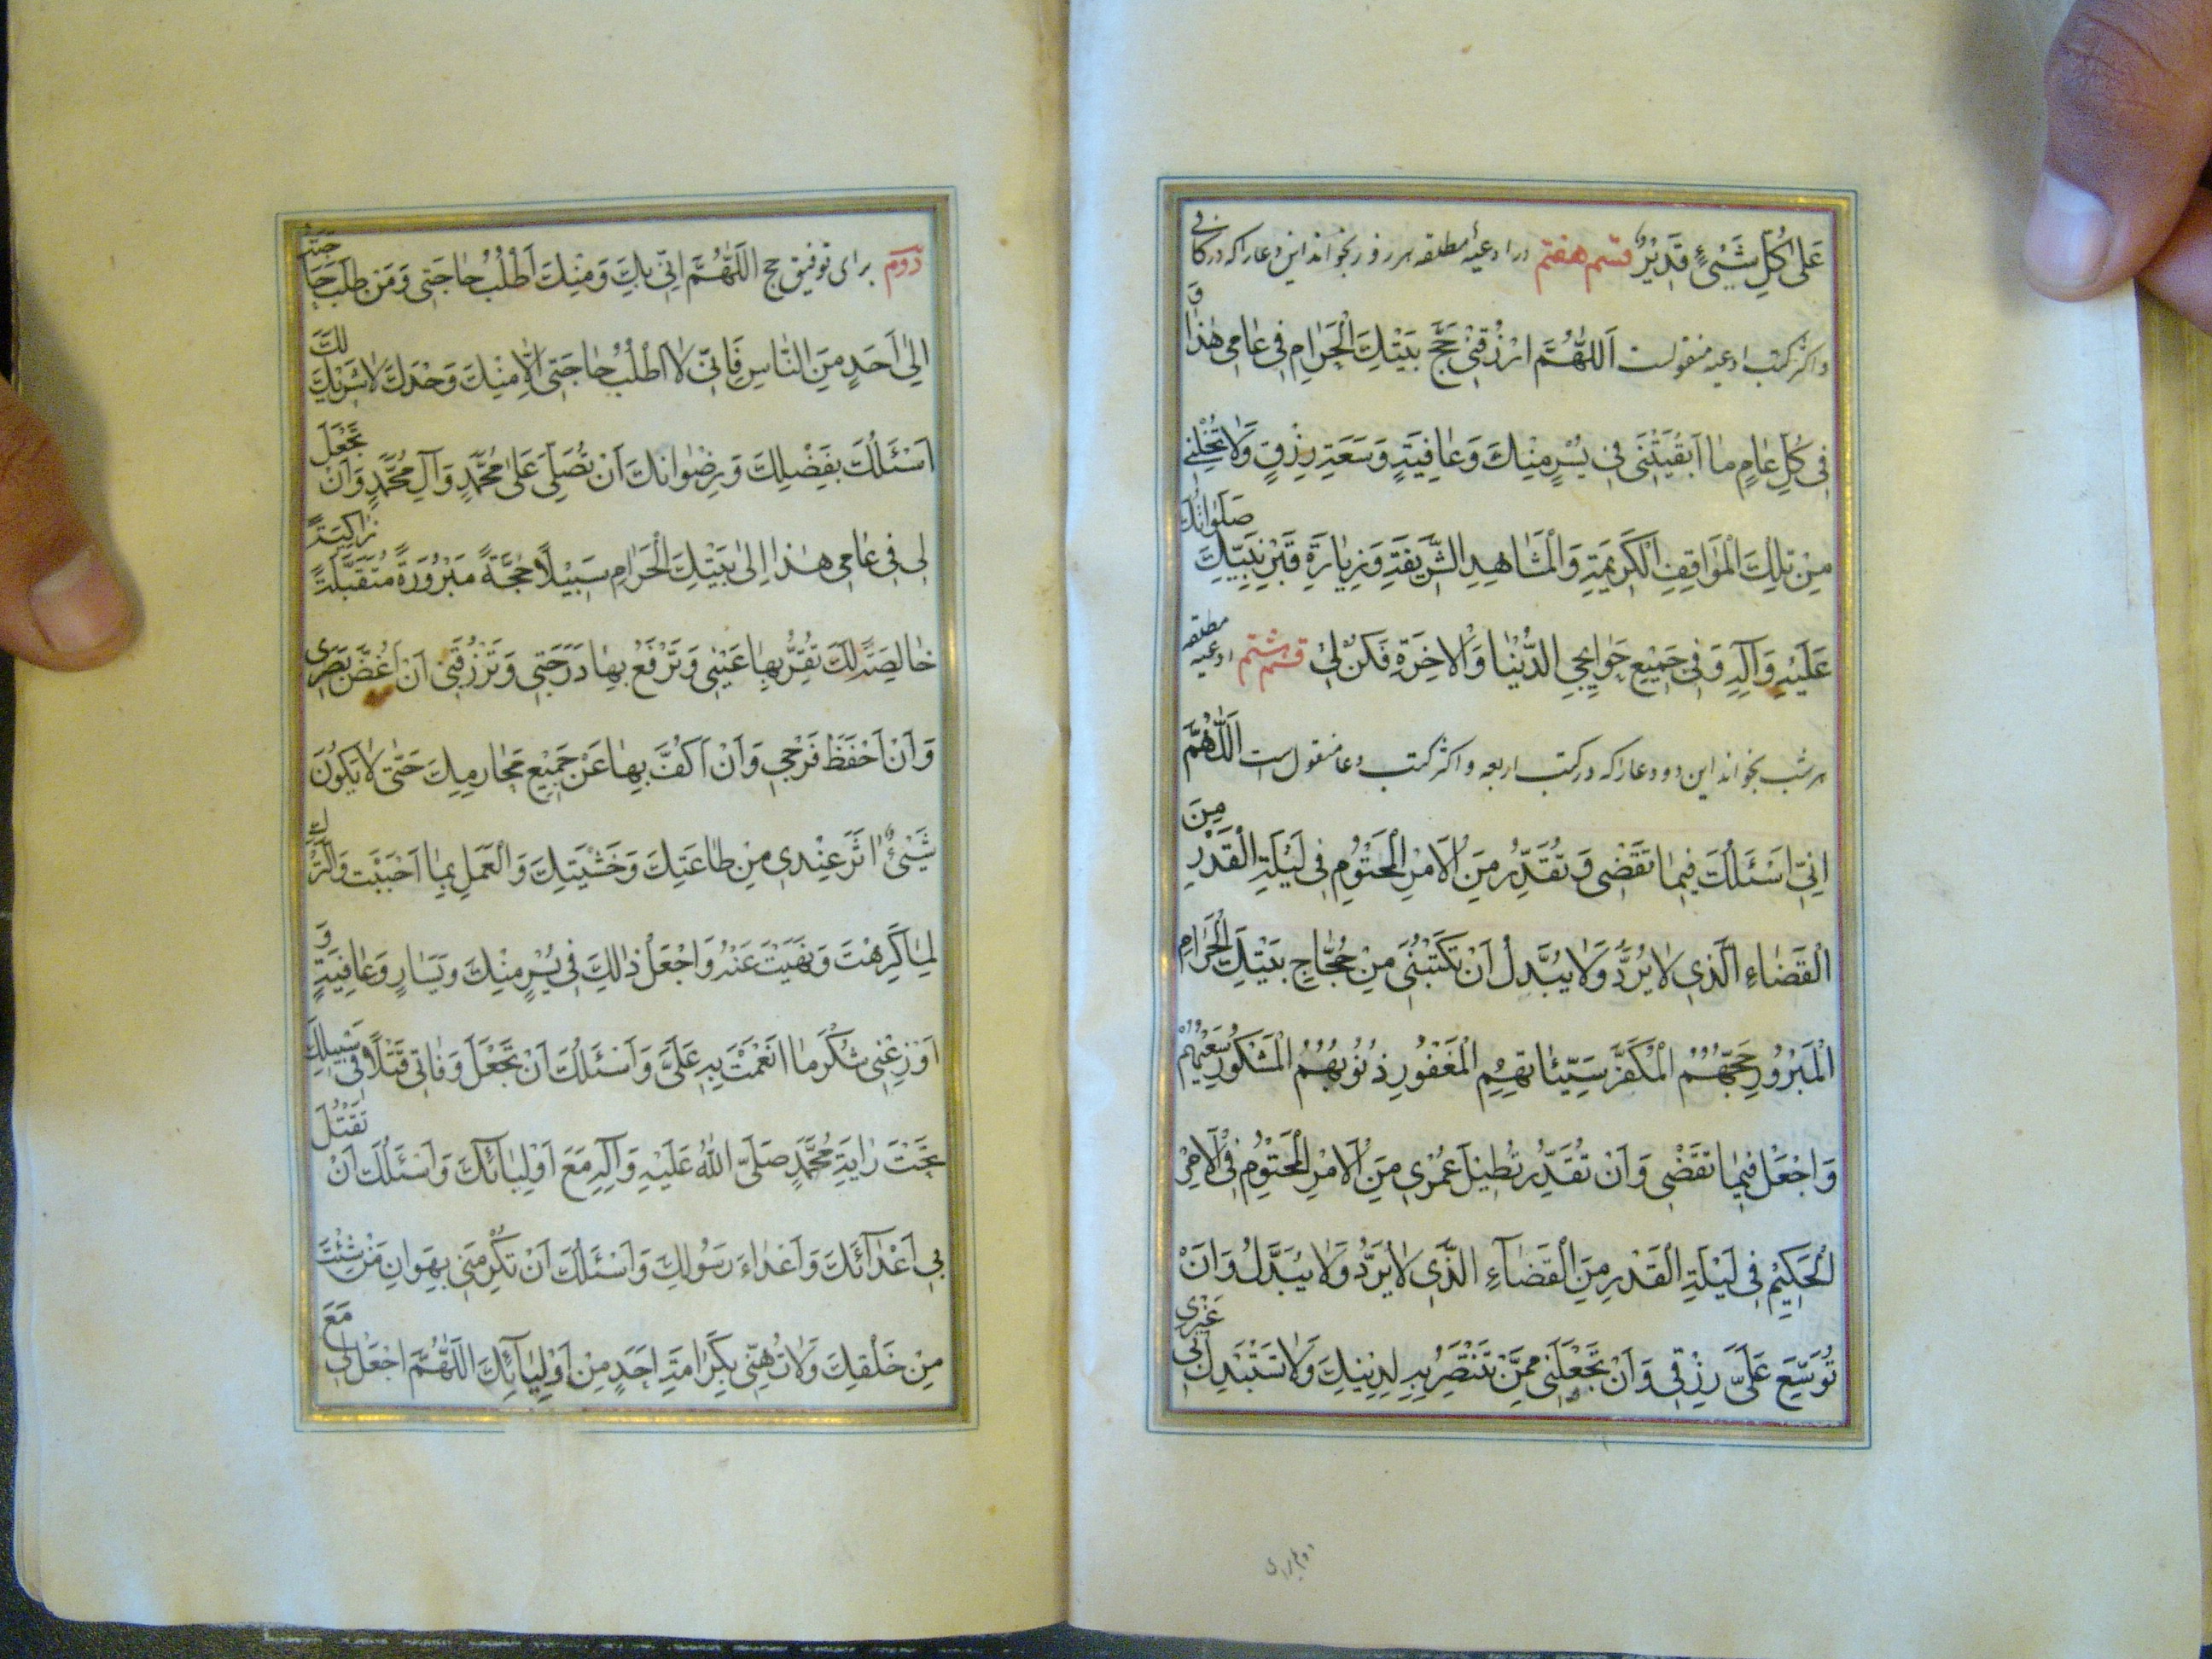 عَلىٰ كُلِّ شَيْءٍ قَدِيْرٌ قسم هفتم در ادعیهٔ مطلقه هر روز بخواند این دعا را که در کافی
و اکثر کتب ادعیه منقولست اَللّٰهُمَّ ارْزُقْنِي حَجَّ بَيْتِكَ الْحَرَامِ فِي عَامِي هٰذَا وَ
فِي كُلِّ عَامٍ مَا اَبْقَيْتَنِي فِي يُسْرٍ مِنْكَ وَعَافِيَةٍ وَسَعَةِ رِزْقٍ وَلَا تُخْلِنِي
مِنْ تِلْكَ الْمَوَاقِفِ الْكَرِيمَةِ وَالْمَشَاهِدِ الشَّرِيفَةِ وَزِيَارَةِ قَبْرِ نَبِيِّكَ صَلَوَاتُكَ
عَلَيْهِ وَآلِهِ وَفِي جَمِيعِ حَوَايِجِ الدُّنْيَا وَالْاٰخِرَةِ فَكُنْ لِي قسم هشتم ادعیه مطلقه
هر شب بخواند این دو دعا را که در کتب اربعه و اکثر کتب دعا منقول است اَللّٰهُمَّ
اِنِّي اَسْئَلُكَ فِيمَا تَقْضِي وَتُقَدِّرُ مِنَ الْاَمْرِ الْمَحْتُومِ فِي لَيْلَةِ الْقَدْرِ مِنَ
الْقَضَاءِ الَّذِي لَا يُرَدُّ وَلَا يُبَدَّلُ اَنْ تَكْتُبَنِي مِنْ حُجَّاجِ بَيْتِكَ الْحَرَامِ
الْمَبْرُورِ حَجُّهُمْ الْمُكَفَّرِ سَيِّئَاتِهِمْ الْمَغْفُورِ ذُنُوبُهُمُ الْمَشْكُورِ سَعْيُهُمْ
وَاجْعَلْ فِيمَا تَقْضِي وَاَنْ تُقَدِّرُ تُطِيلَ عُمْرِي مِنَ الْاَمْرِ الْمَحْتُومِ فِي الْاَمْرِ
الْحَكِيمِ فِي لَيْلَةِ الْقَدْرِ مِنَ الْقَضَآءِ الَّذِي لَا يُرَدُّ وَلَا يُبَدَّلُ وَاَنْ
تُوَسِّعَ عَلَيَّ رِزْقِي وَاَنْ تَجْعَلَنِي مِمَّنْ تَنْتَصِرُ بِهِ لِدِينِكَ وَلَا تَسْتَبْدِلْ بِي غَيْرِي
دوم برای
دوّم برای توفیق حج اَللّٰهُمَّ اِنِّي بِكَ وَمِنْكَ اَطْلُبُ حَاجَتِي وَمَنْ طَلَبَ حَاجَتَهُ
اِلىٰ اَحَدٍ مِنَ النَّاسِ فَاِنِّي لَا اَطْلُبُ حَاجَتِي اِلَّا مِنْكَ وَحْدَكَ لَا شَرِيكَ لَكَ
اَسْئَلُكَ بِفَضْلِكَ وَرِضْوَانِكَ اَنْ تُصَلِّيَ عَلىٰ مُحَمَّدٍ وَآلِ مُحَمَّدٍ وَاَنْ تَجْعَلَ
لِي فِي عَامِي هٰذَا اِلىٰ بَيْتِكَ الْحَرَامِ سَبِيلًا حَجَّةً مَبْرُورَةً مُتَقَبَّلَةً زَاكِيَةً
خَالِصَةً لَكَ تُقِرُّ بِهَا عَيْنِي وَتَرْفَعُ بِهَا دَرَجَتِي وَتَرْزُقَنِي اَنْ اَغُضَّ بَصَرِي
وَاَنْ اَحْفَظَ فَرْجِي وَاَنْ اَكُفَّ بِهَا عَنْ جَمِيعِ مَحَارِمِكَ حَتّىٰ لَا يَكُونَ
شَيْءٌ اٰثَرَ عِنْدِي مِنْ طَاعَتِكَ وَخَشْيَتِكَ وَالْعَمَلِ بِمَا اَحْبَبْتَ وَالتَّرْكِ
لِمَا كَرِهْتَ وَنَهَيْتَ عَنْهُ وَاجْعَلْ ذٰلِكَ فِي يُسْرٍ مِنْكَ وَيَسَارٍ وَعَافِيَةٍ وَ
اَوْزِعْنِي شُكْرَ مَا اَنْعَمْتَ بِهِ عَلَيَّ وَاَسْئَلُكَ اَنْ تَجْعَلَ وَفَاتِي قَتْلًا فِي سَبِيلِكَ
تَحْتَ رَايَةِ مُحَمَّدٍ صَلَّى اللّٰهُ عَلَيْهِ وَآلِهِ مَعَ اَوْلِيَائِكَ وَاَسْئَلُكَ اَنْ تَقْتُلَ
بِي اَعْدَآئَكَ وَاَعْدَاءَ رَسُولِكَ وَاَسْئَلُكَ اَنْ تُكْرِمَنِي بِهَوَانِ مَنْ شِئْتَ
مِنْ خَلْقِكَ وَلَا تُهِنِّي بِكَرَامَةِ اَحَدٍ مِنْ اَوْلِيَآئِكَ اَللّٰهُمَّ اجْعَلْ لِي مَعَ